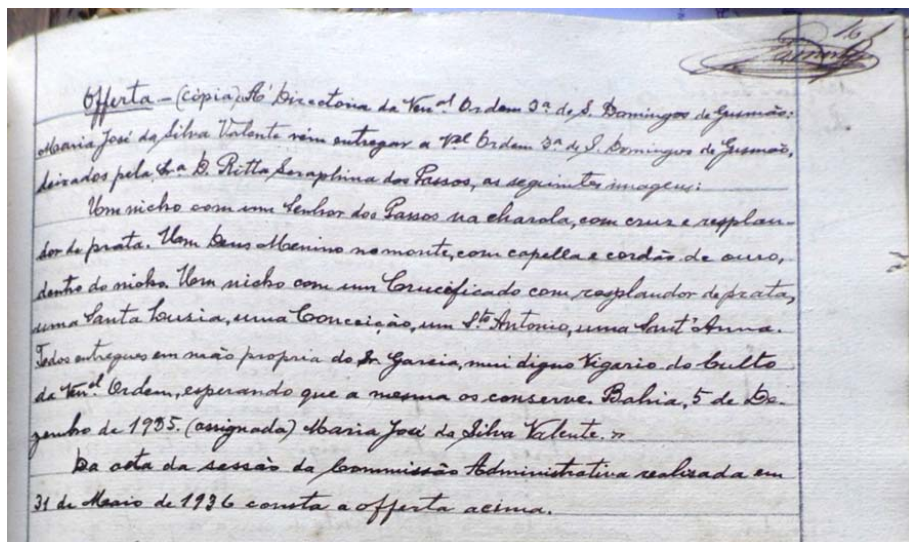 16
Offerta - (cópia) Á Directoria da Ven.el Ordem 3ª de S. Domingos de Gusmão:
Maria José da Silva Valente vem entregar a V.el Ordem 3ª de S. Domingos de Gusmão,
deixados pela Sr.a D. Ritta Seraphina dos Passos, as seguintes imagens:
Um nicho com um Senhor dos Passos na charola, com cruz e resplan-
dor de prata. Um Deus Menino no monte, com capella e cordão de ouro,
dentro do nicho. Um nicho com um Crucificado com resplandor de prata,
uma Santa Luzia, uma Conceição, um Sto Antonio, uma Sant'Anna.
Todos entregues em mão propria do Sr. Garcia, mui digno Vigario do Culto
da Ven.el Ordem, esperando que a mesma os conserve. Bahia, 5 de De-
zembro de 1935. (assignado) Maria José da Silva Valente. "
Da acta da sessão da Commissão Administrativa realizada em
31 de Maio de 1936 consta a offerta acima.